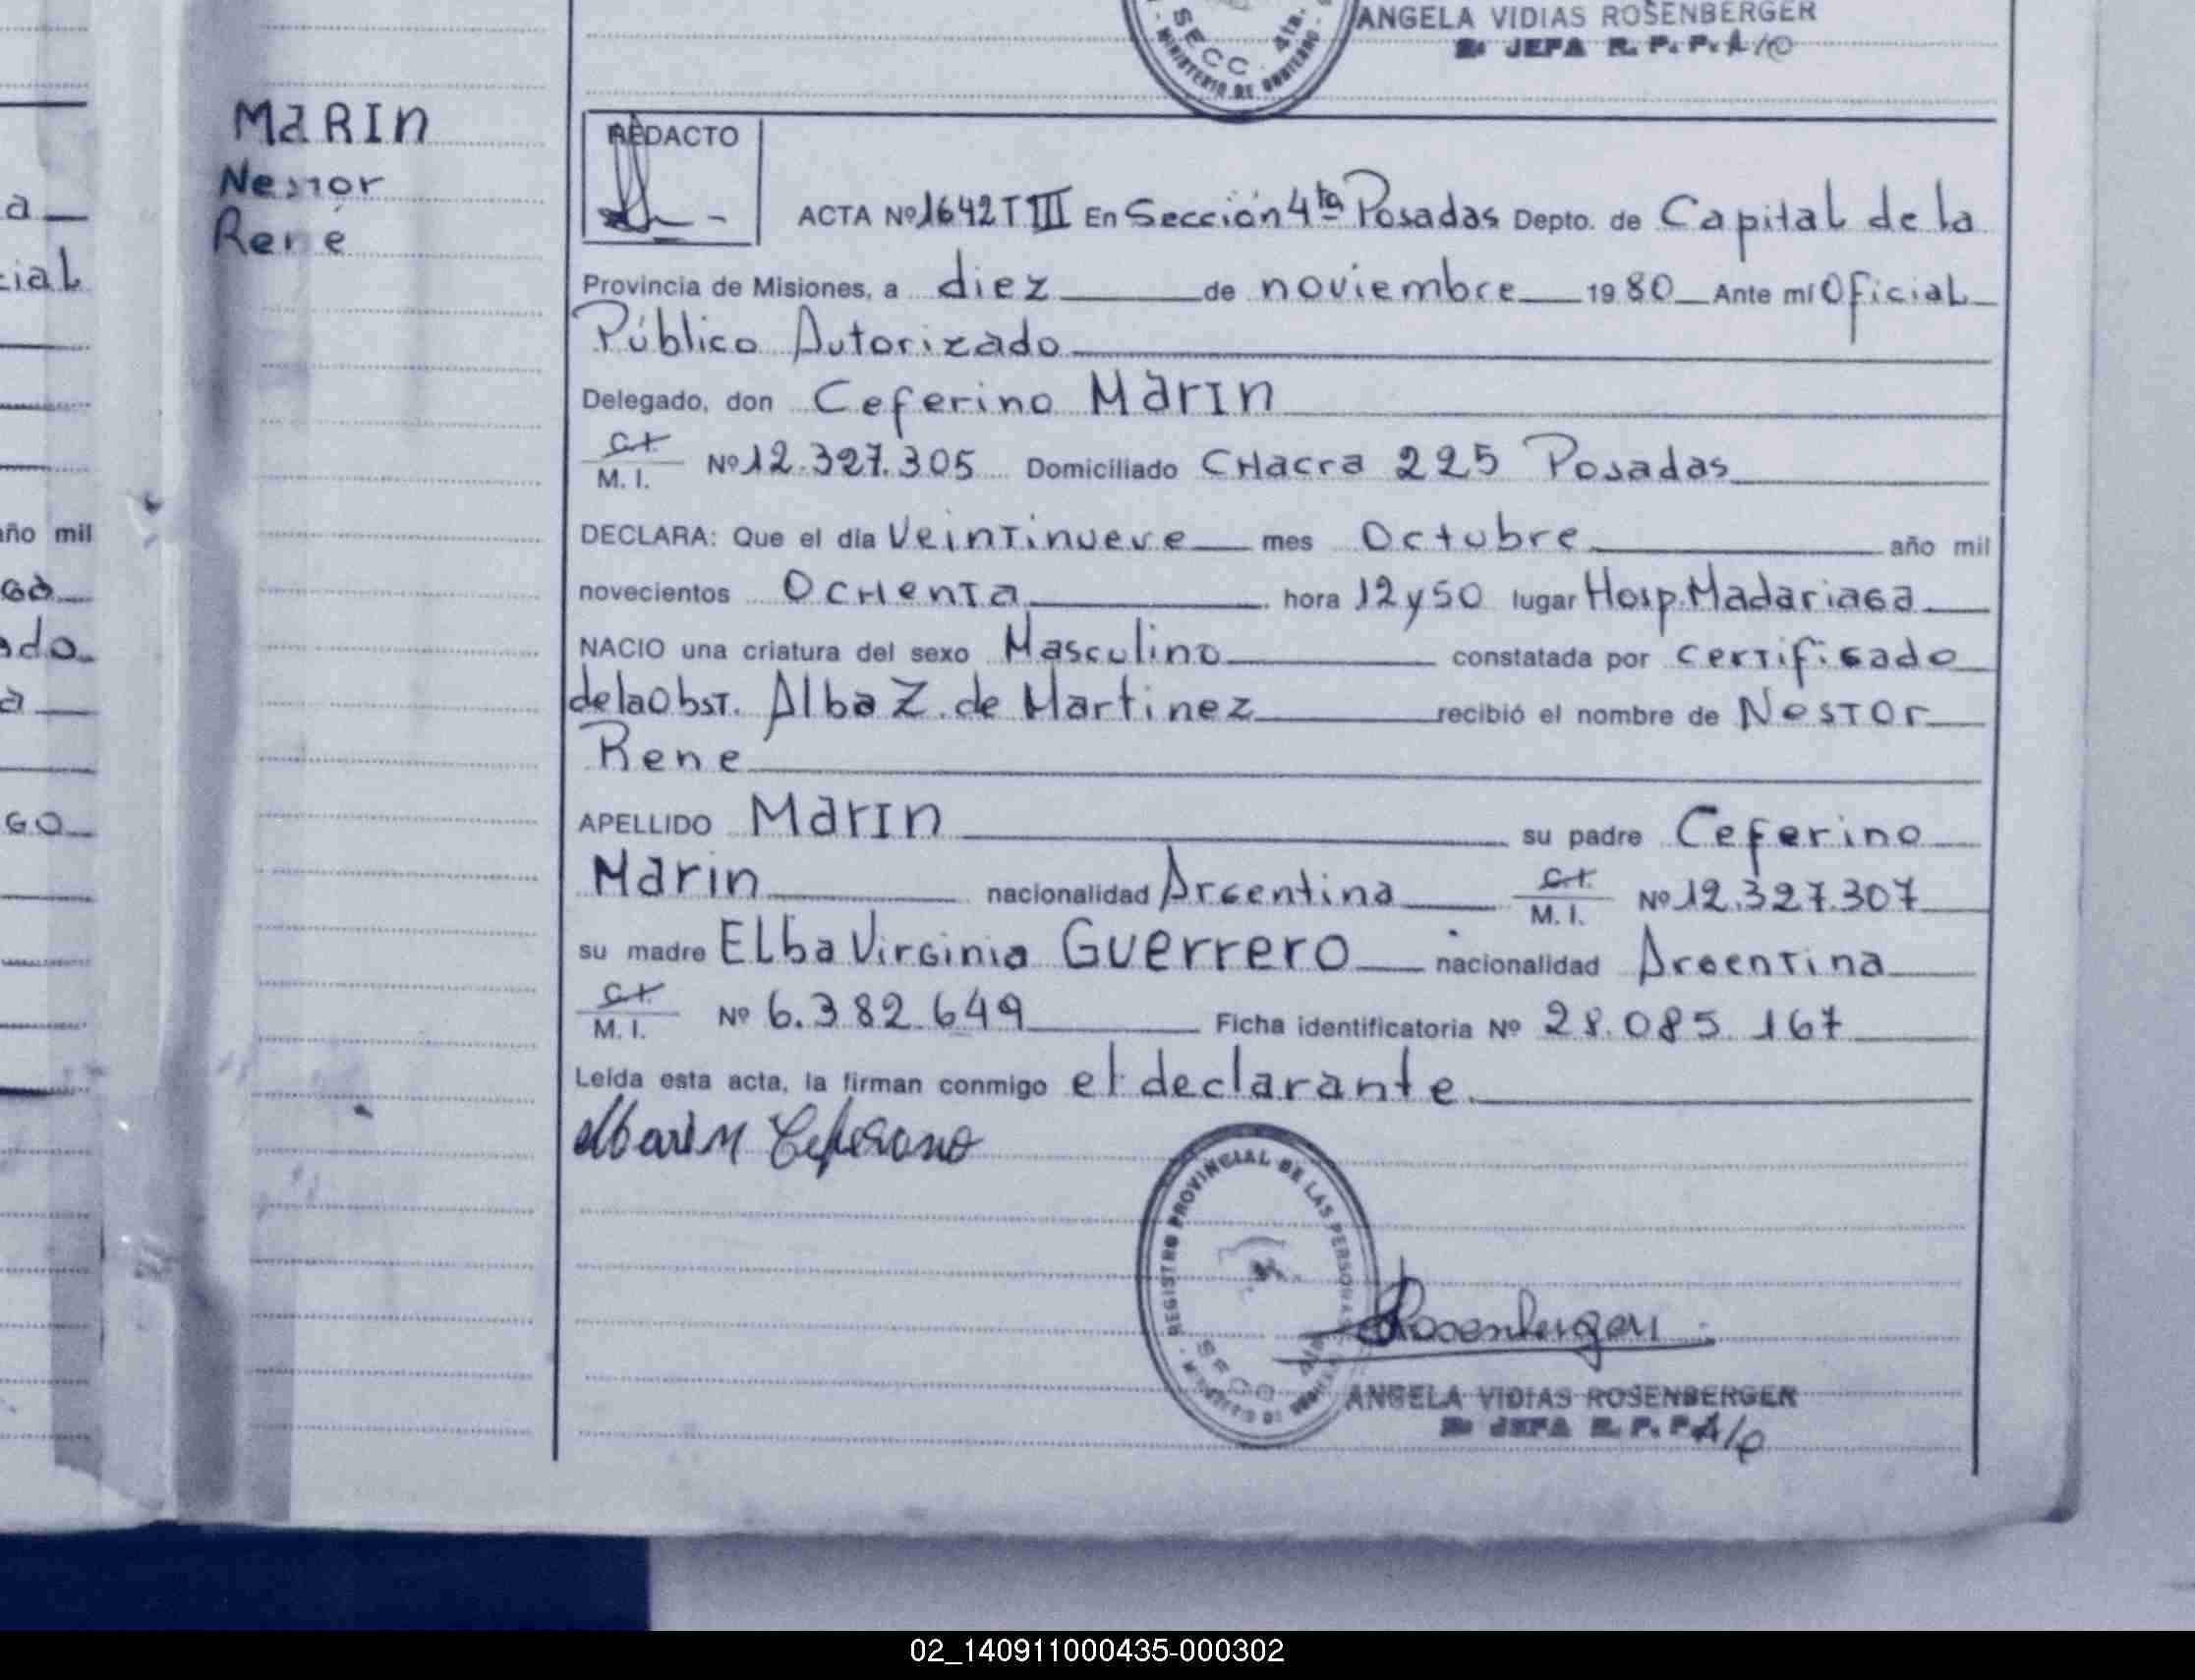 SECC. 4ta.
MINISTERIO DE GOBIERNO
ANGELA VIDIAS ROSENBERGER
JEFA R. P. P. A/C
MARIN
Nestor
René
REDACTO
ACTA Nº 1642 T III En Sección 4ta Posadas Depto. de Capital de la
Provincia de Misiones, a diez de noviembre 1980 Ante mí Oficial
Público Autorizado
Delegado, don Ceferino MarIn
C.I. M. I. Nº 12.327.305 Domiciliado CHacra 225 Posadas
DECLARA: Que el día Veintinueve mes Octubre año mil
novecientos OcHenta hora 12 y 50 lugar Hosp. Madariaga
NACIO una criatura del sexo Masculino constatada por certificado
de la Obst. Alba Z. de Martinez recibió el nombre de Nestor
Rene
APELLIDO MarIn su padre Ceferino
Marin nacionalidad Argentina C.I. M. I. Nº 12.327.307
su madre Elba Virginia Guerrero nacionalidad Argentina
C.I. M. I. Nº 6.382.649 Ficha identificatoria Nº 28.085.167
Leída esta acta, la firman conmigo el declarante.
Marin Ceferino
REGISTRO PROVINCIAL DE LAS PERSONAS
SECC 4ta
Rosenberger
ANGELA VIDIAS ROSENBERGER
JEFA R. P. P. A/C
a
cial
año mil
ado
a
GO
02_140911000435-000302